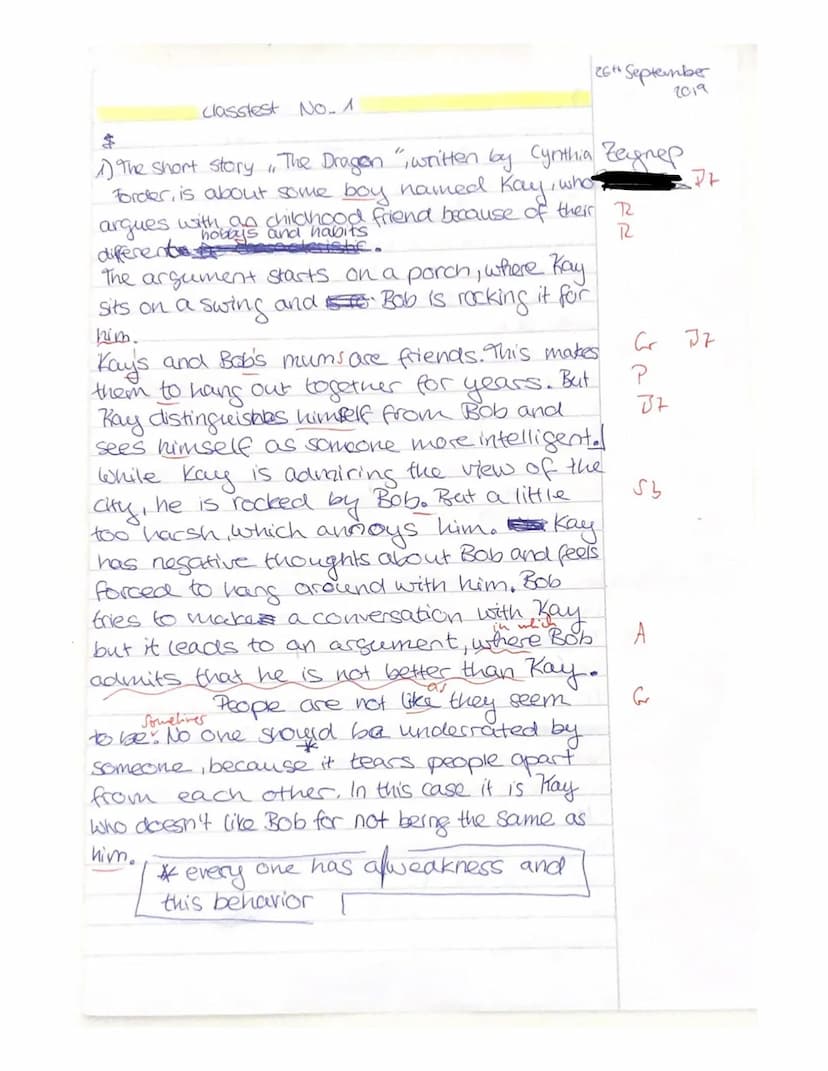 26th September
2019
Classtest No. 1
1) The short story „The Dragon“, written by Cynthia Zeynep
Forder, is about some boy named Kay, who
argues with an childhood friend because of their R
hobbys and habits R
different.
The argument starts on a porch, where Kay
sits on a swing and Bob is rocking it for
him.
Kay's and Bob's mums are friends. This makes Gr Bz
them to hang out together for years. But P
Kay distinguishes himself from Bob and Bz
sees himself as someone more intelligent.
While Kay is admiring the view of the
city, he is rocked by Bob. But a little Sb
too harsh, which annoys him. Kay
has negative thoughts about Bob and feels
forced to hang around with him. Bob
tries to make a conversation with Kay
in which
but it leads to an argument, where Bob A
admits that he is not better than Kay.
as
People are not like they seem Gr
sometimes
to be. No one should be underrated by
*
someone, because it tears people apart
from each other. In this case it is Kay
who doesn't like Bob for not being the same as
him.
* every one has a weakness and
this behavior